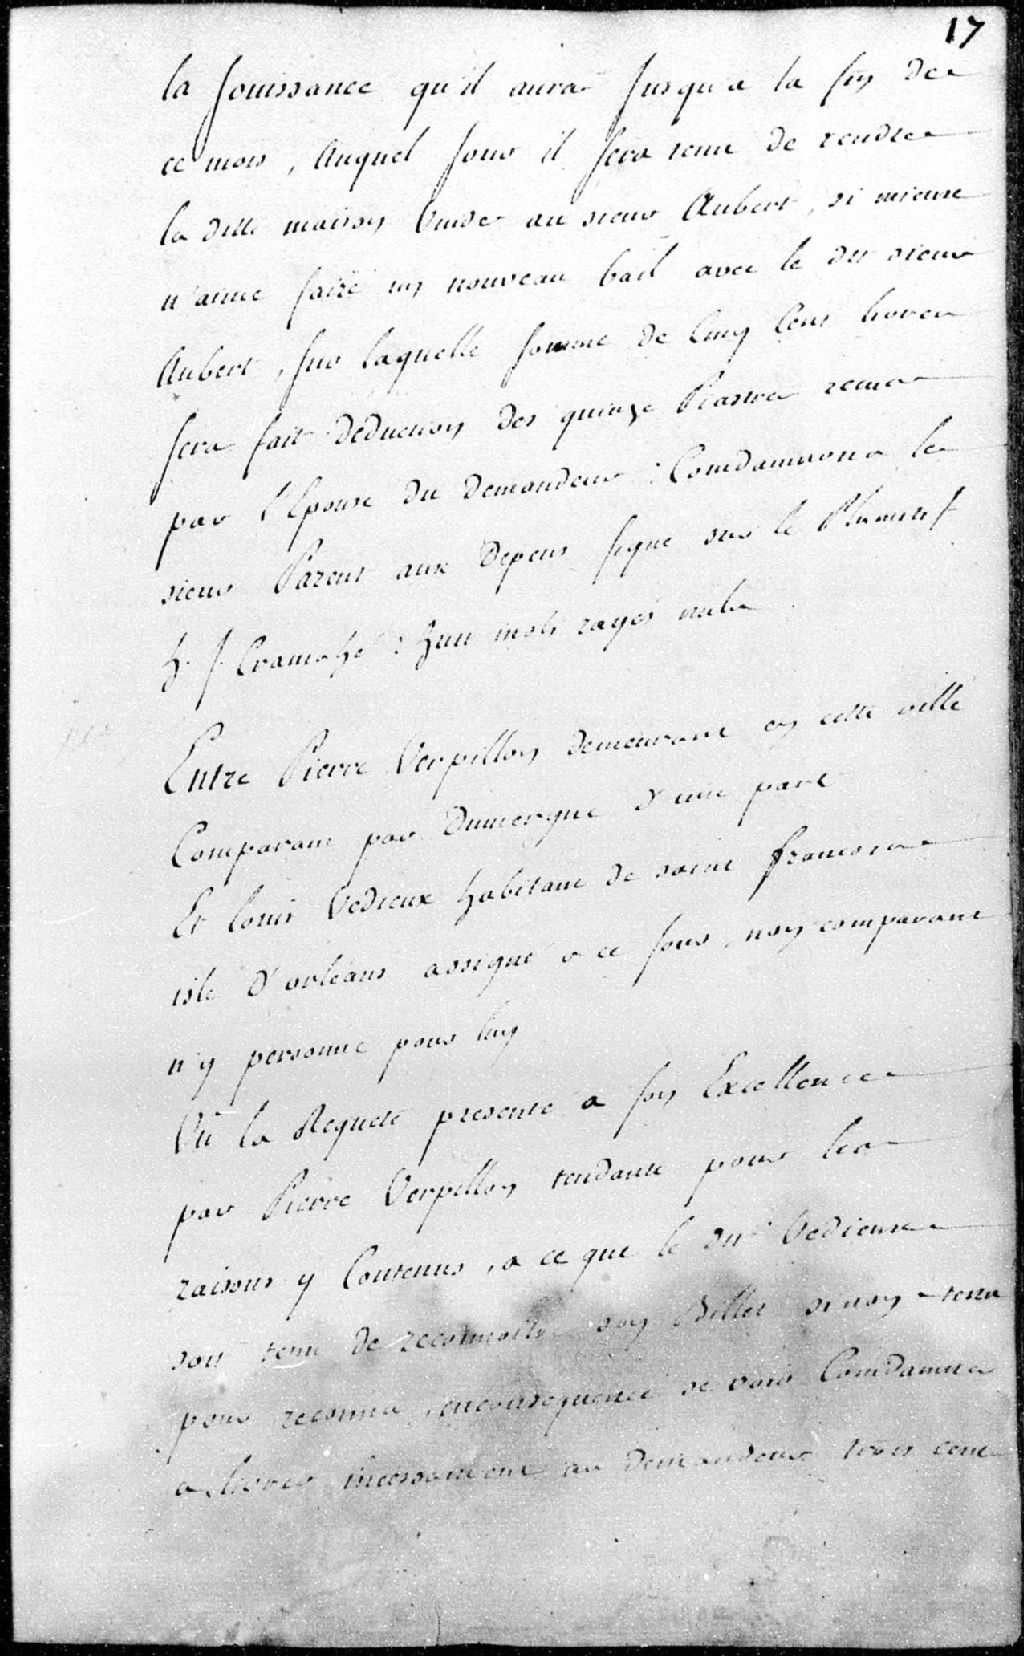 17
la Jouissance qu'il aura Jusqu'a la fin de
ce mois, Auquel Jour il sera tenu de rendre
la ditte maison Vuide au sieur Aubert, si mieux
n'aime faire un nouveau bail avec le dit sieur
Aubert, sur laquelle somme de Cinq Cens livres
sera fait deduction des quinze Piastres recues
par l'Epouse du demandeur : Comdamnons le
sieur Parent aux depens signé sur le Plumitif
h. J. Cramahé : huit mots rayés nuls
Entre Pierre Verpillon demeurant en cette ville
Comparant par Dumergue d'une part
Et Louis Vedieux habitant de saint francois
isle d'orleans assigné a ce Jour, non comparant
n'y personne pour luy
Vû la Requete presenté a son Excellence
par Pierre Verpillon tendante pour les
raisons y Contenus, a ce que le dit Vedieux
soit tenu de reconnoitre son Billet sinon tenu
pour reconnu, enconsequence se voir Comdamner
a livrer incessament au Demandeur trois cent